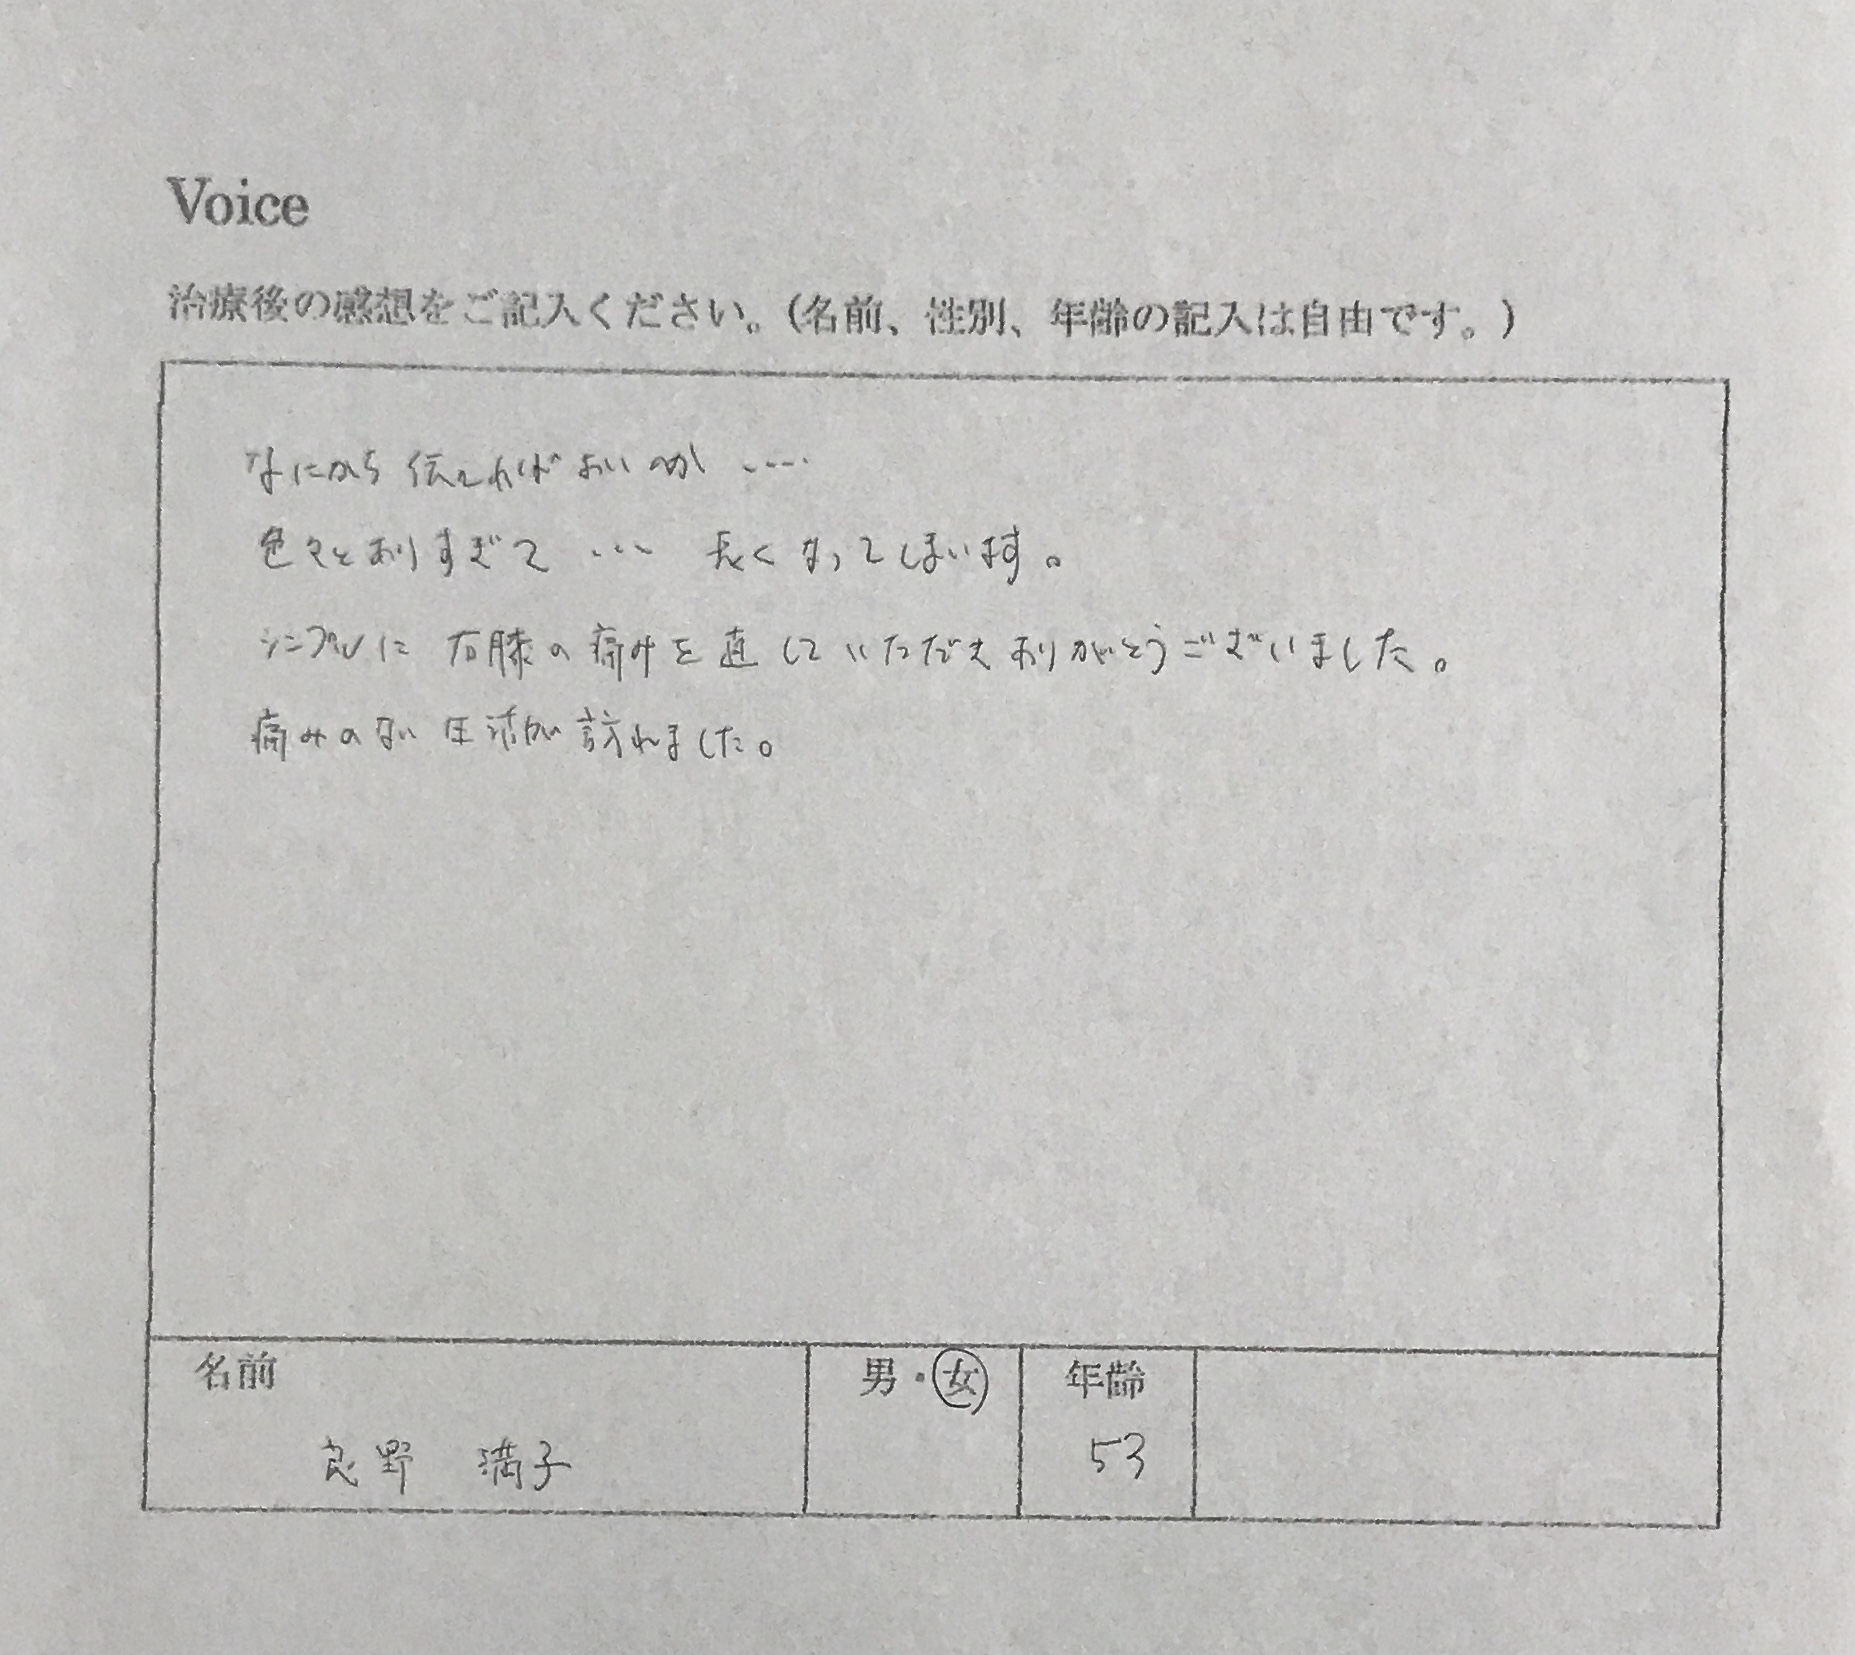 Voice
治療後の感想をご記入ください。(名前、性別、年齢の記入は自由です。)
なにから伝えればよいのか ‥‥
色々とありすぎて … 長くなってしまいます。
シンプルに 右膝の痛みを直していただきありがとうございました。
痛みのない生活が訪れました。
名前 男・女 年齢
良野 満子 53